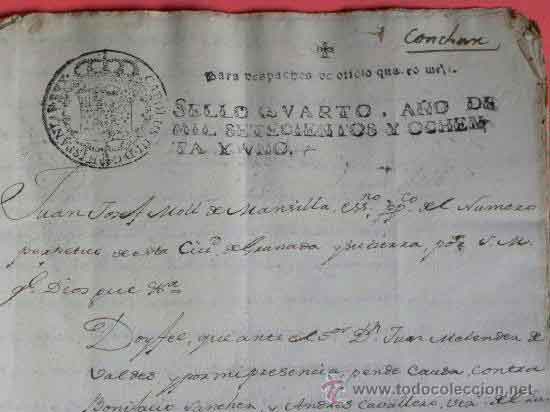 Conchar
Para despachos de oficio quatro mrs.
SELLO QVARTO, AÑO DE
MIL SETECIENTOS Y OCHEN
TA Y VNO.
Juan Josef Moll de Mansilla, essno ppco del Numero
perpetuo de esta Ciud de Granada y su tierra por S. M.
qe Dios gue &a
Doy fee, que ante el Sor Dn Juan Melendez
de Valdes y por mi presencia, pende Causa contra
Bonifacio Sanchez, y Andres Cavallero,
todocoleccion
www.todocoleccion.net